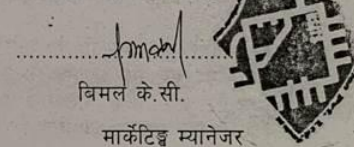 विमल के.सी.
मार्केटिङ्ग म्यानेजर